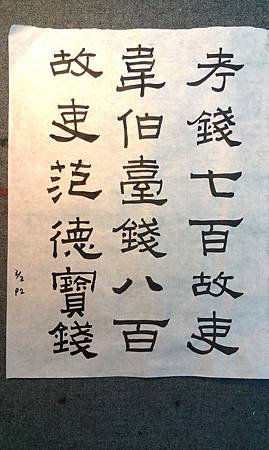 孝錢七百故吏
韋伯臺錢八百
故吏范德寶錢
3/2
P2